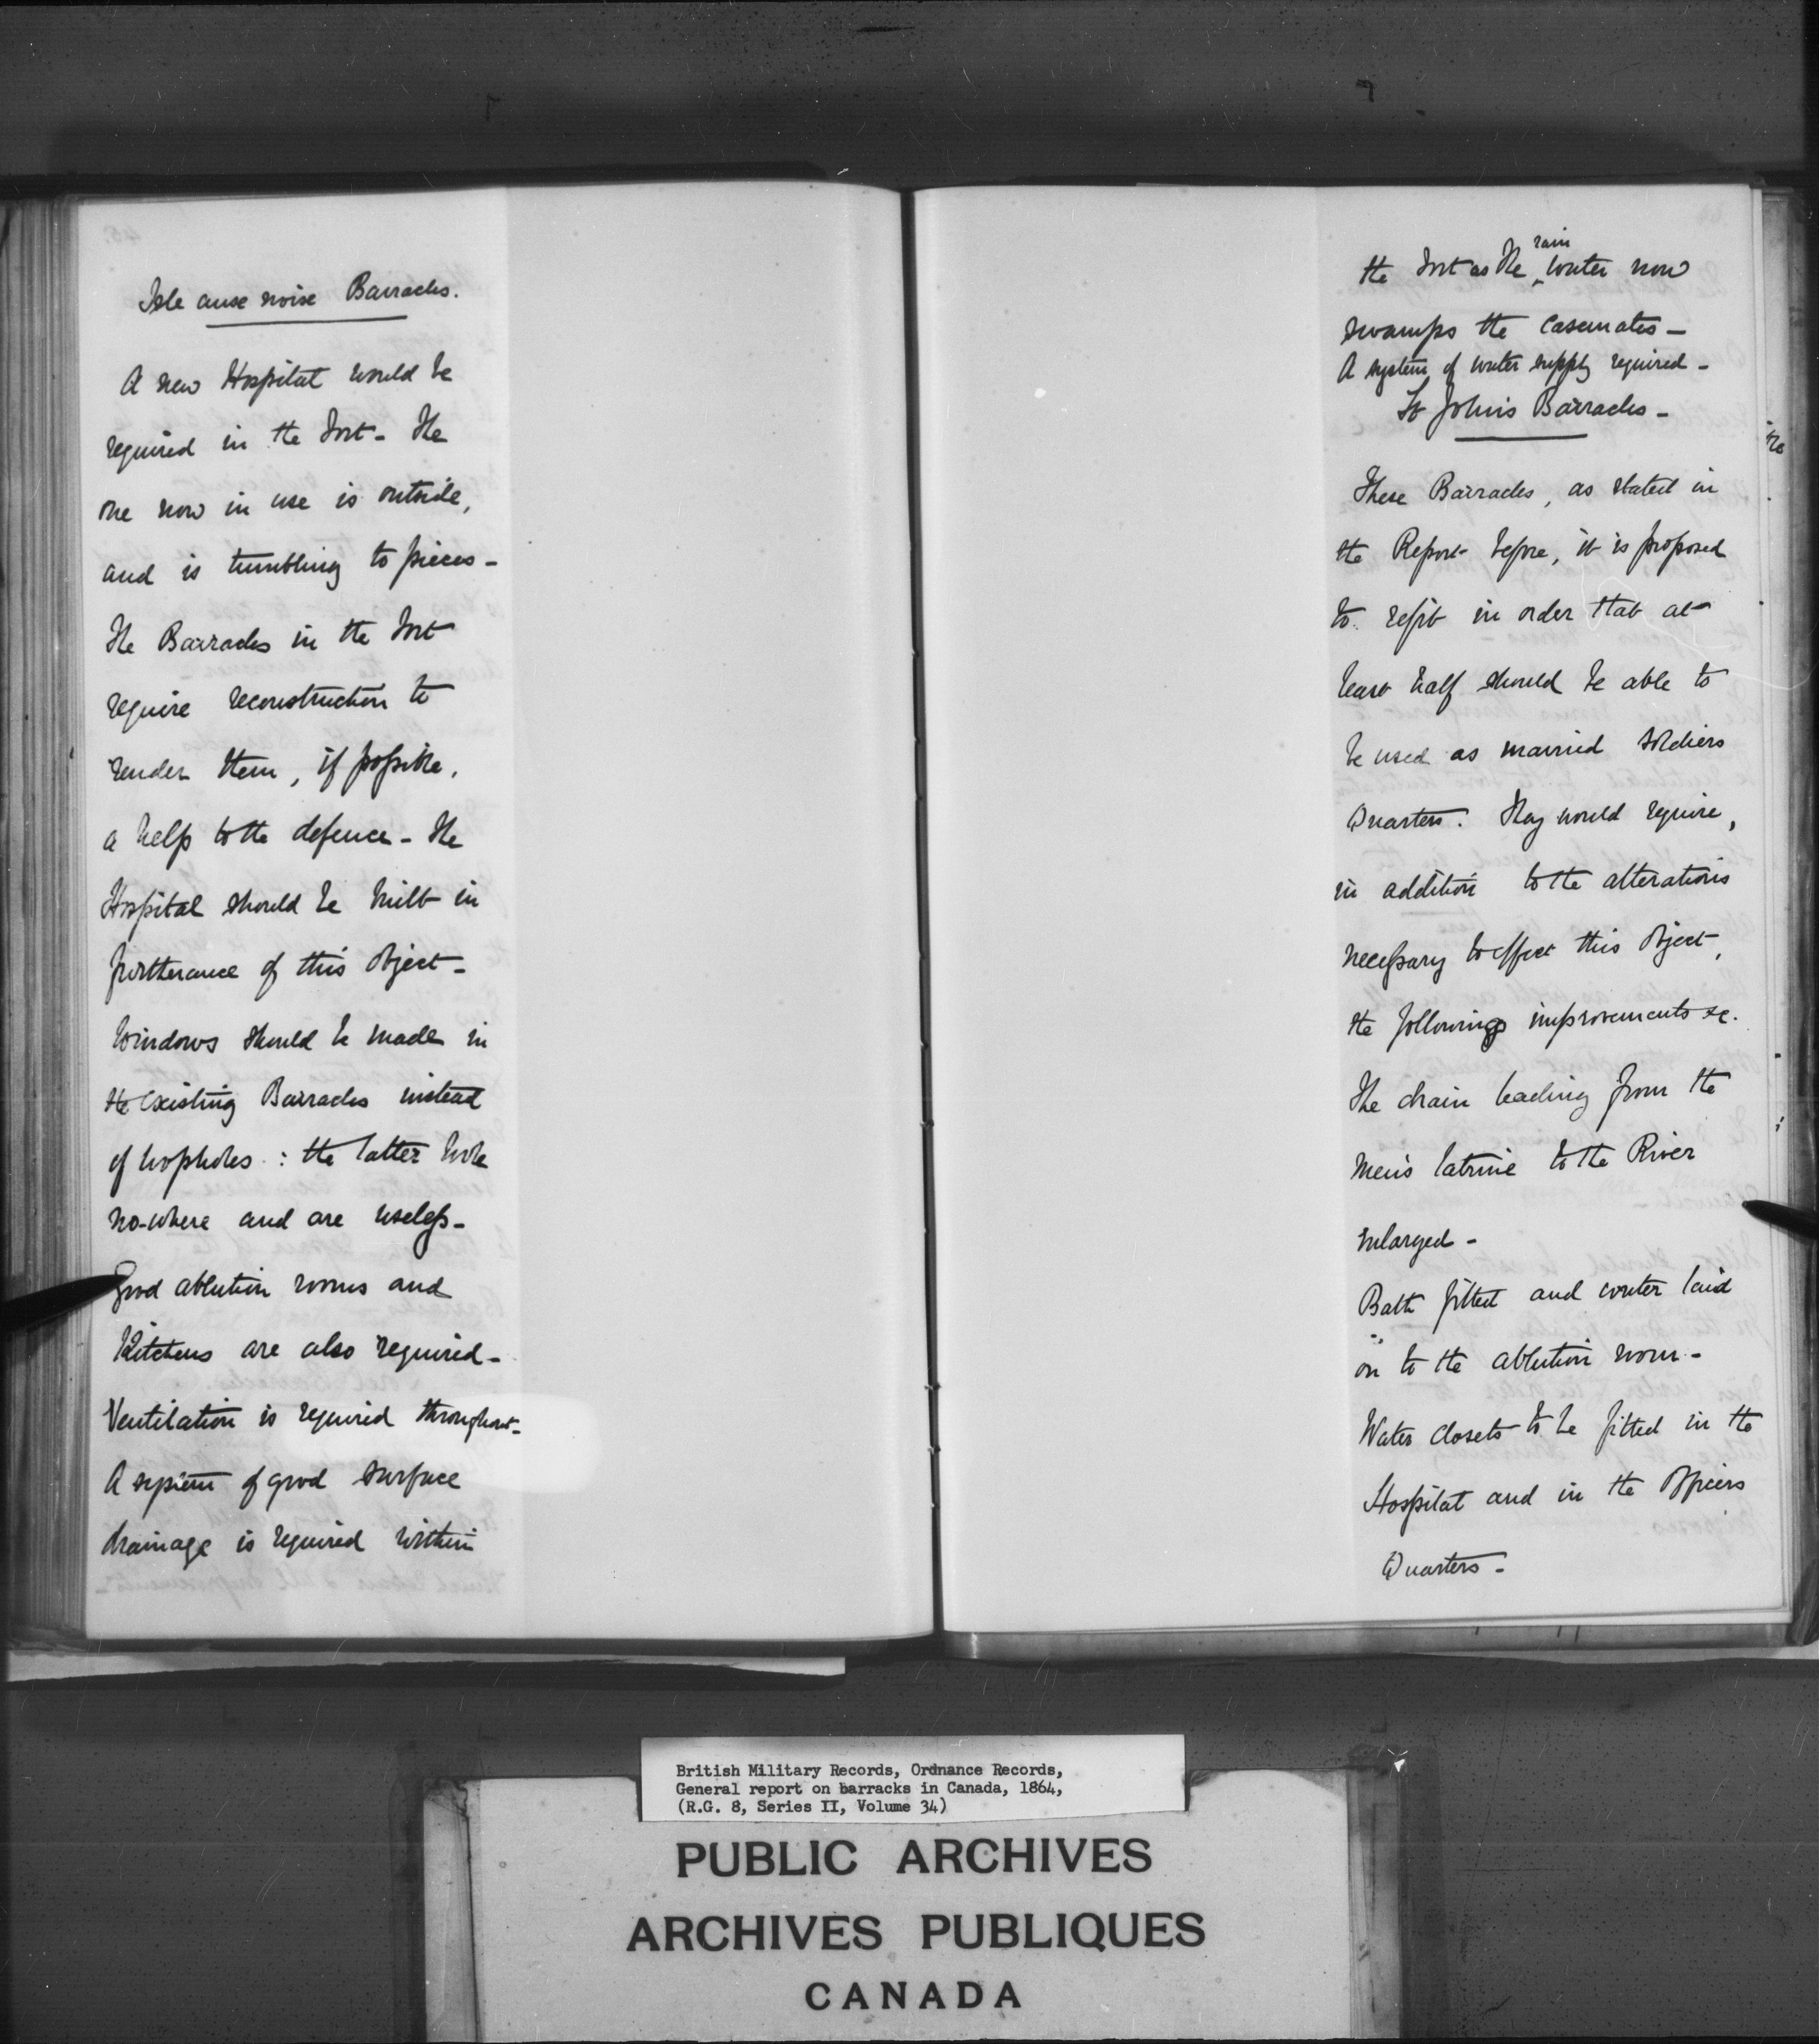 Isle ause noise Barracks.
A new Hospital would be
required in the Fort - The
one now in use is outside,
and is tumbling to pieces -
The Barracks in the Fort
require reconstruction to
render them, if possible,
a help to the defence - The
Hospital should be built in
furtherance of this object -
Windows should be made in
the existing Barracks instead
of loopholes : the latter look
no-where and are useless -
Good ablution rooms and
Kitchens are also required -
Ventilation is required throughout -
A system of good surface
drainage is required within
the Fort as the rain water now
swamps the Casemates -
A system of water supply required -
St Johns Barracks -
These Barracks, as stated in
the Report before, it is proposed
to refit in order that at
least half should be able to
be used as married soldiers
Quarters. They would require,
in addition to the alterations
necessary to effect this object,
the following improvements &c.
The drain leading from the
men's latrine to the River
enlarged -
Bath fitted and water laid
on to the ablution room -
Water closets to be fitted in the
Hospital and in the Officers
Quarters -
British Military Records, Ordnance Records,
General report on barracks in Canada, 1864,
(R.G. 8, Series II, Volume 34)
PUBLIC ARCHIVES
ARCHIVES PUBLIQUES
CANADA